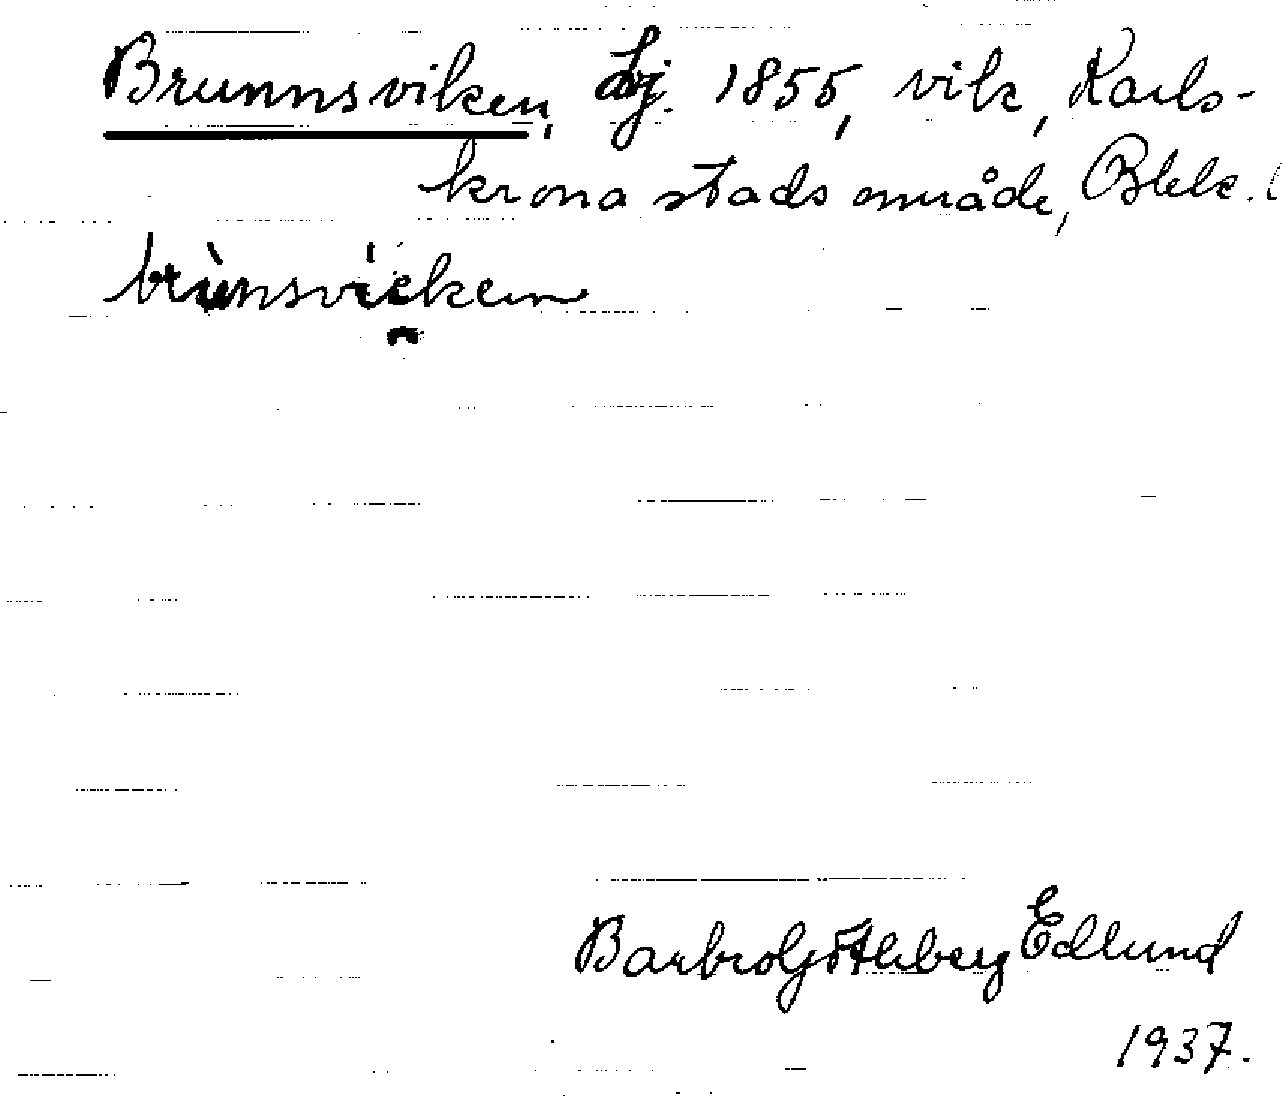 Brunnsviken, Lj. 1855, vik, Karls-
krona stads område, Blek. l
brùnsvicken
Barbro Götheberg Edlund
1937.